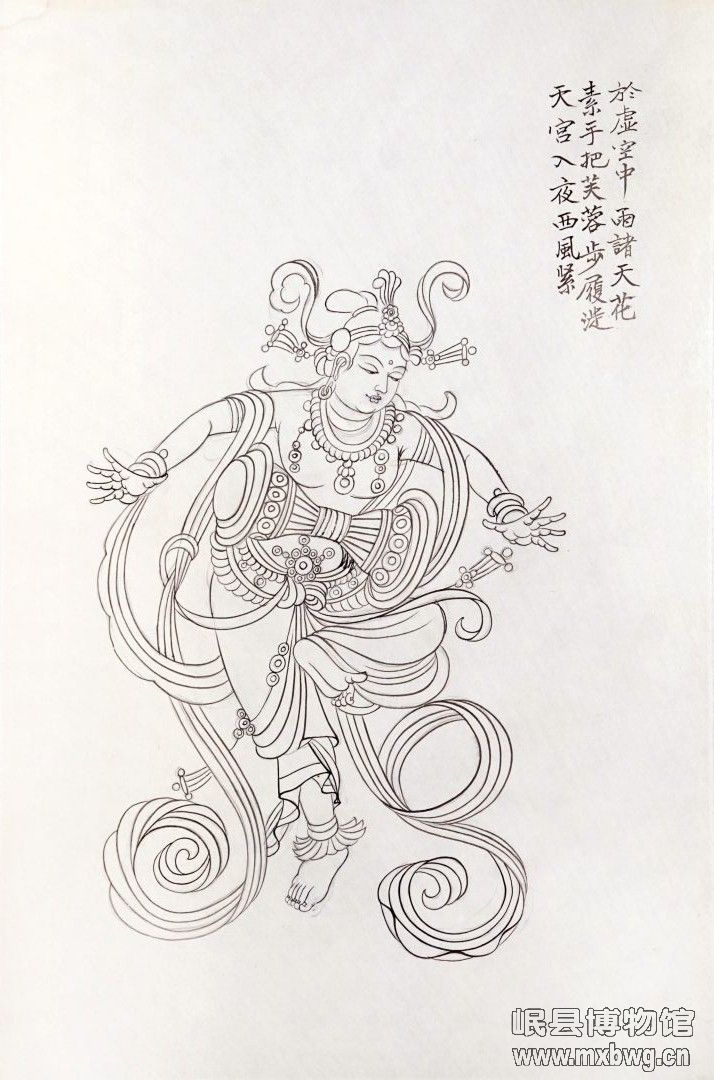 於虛空中 雨諸天花
素手把芙蓉步履
天宮入夜西風紧
岷县博物馆
www.mxbwg.cn